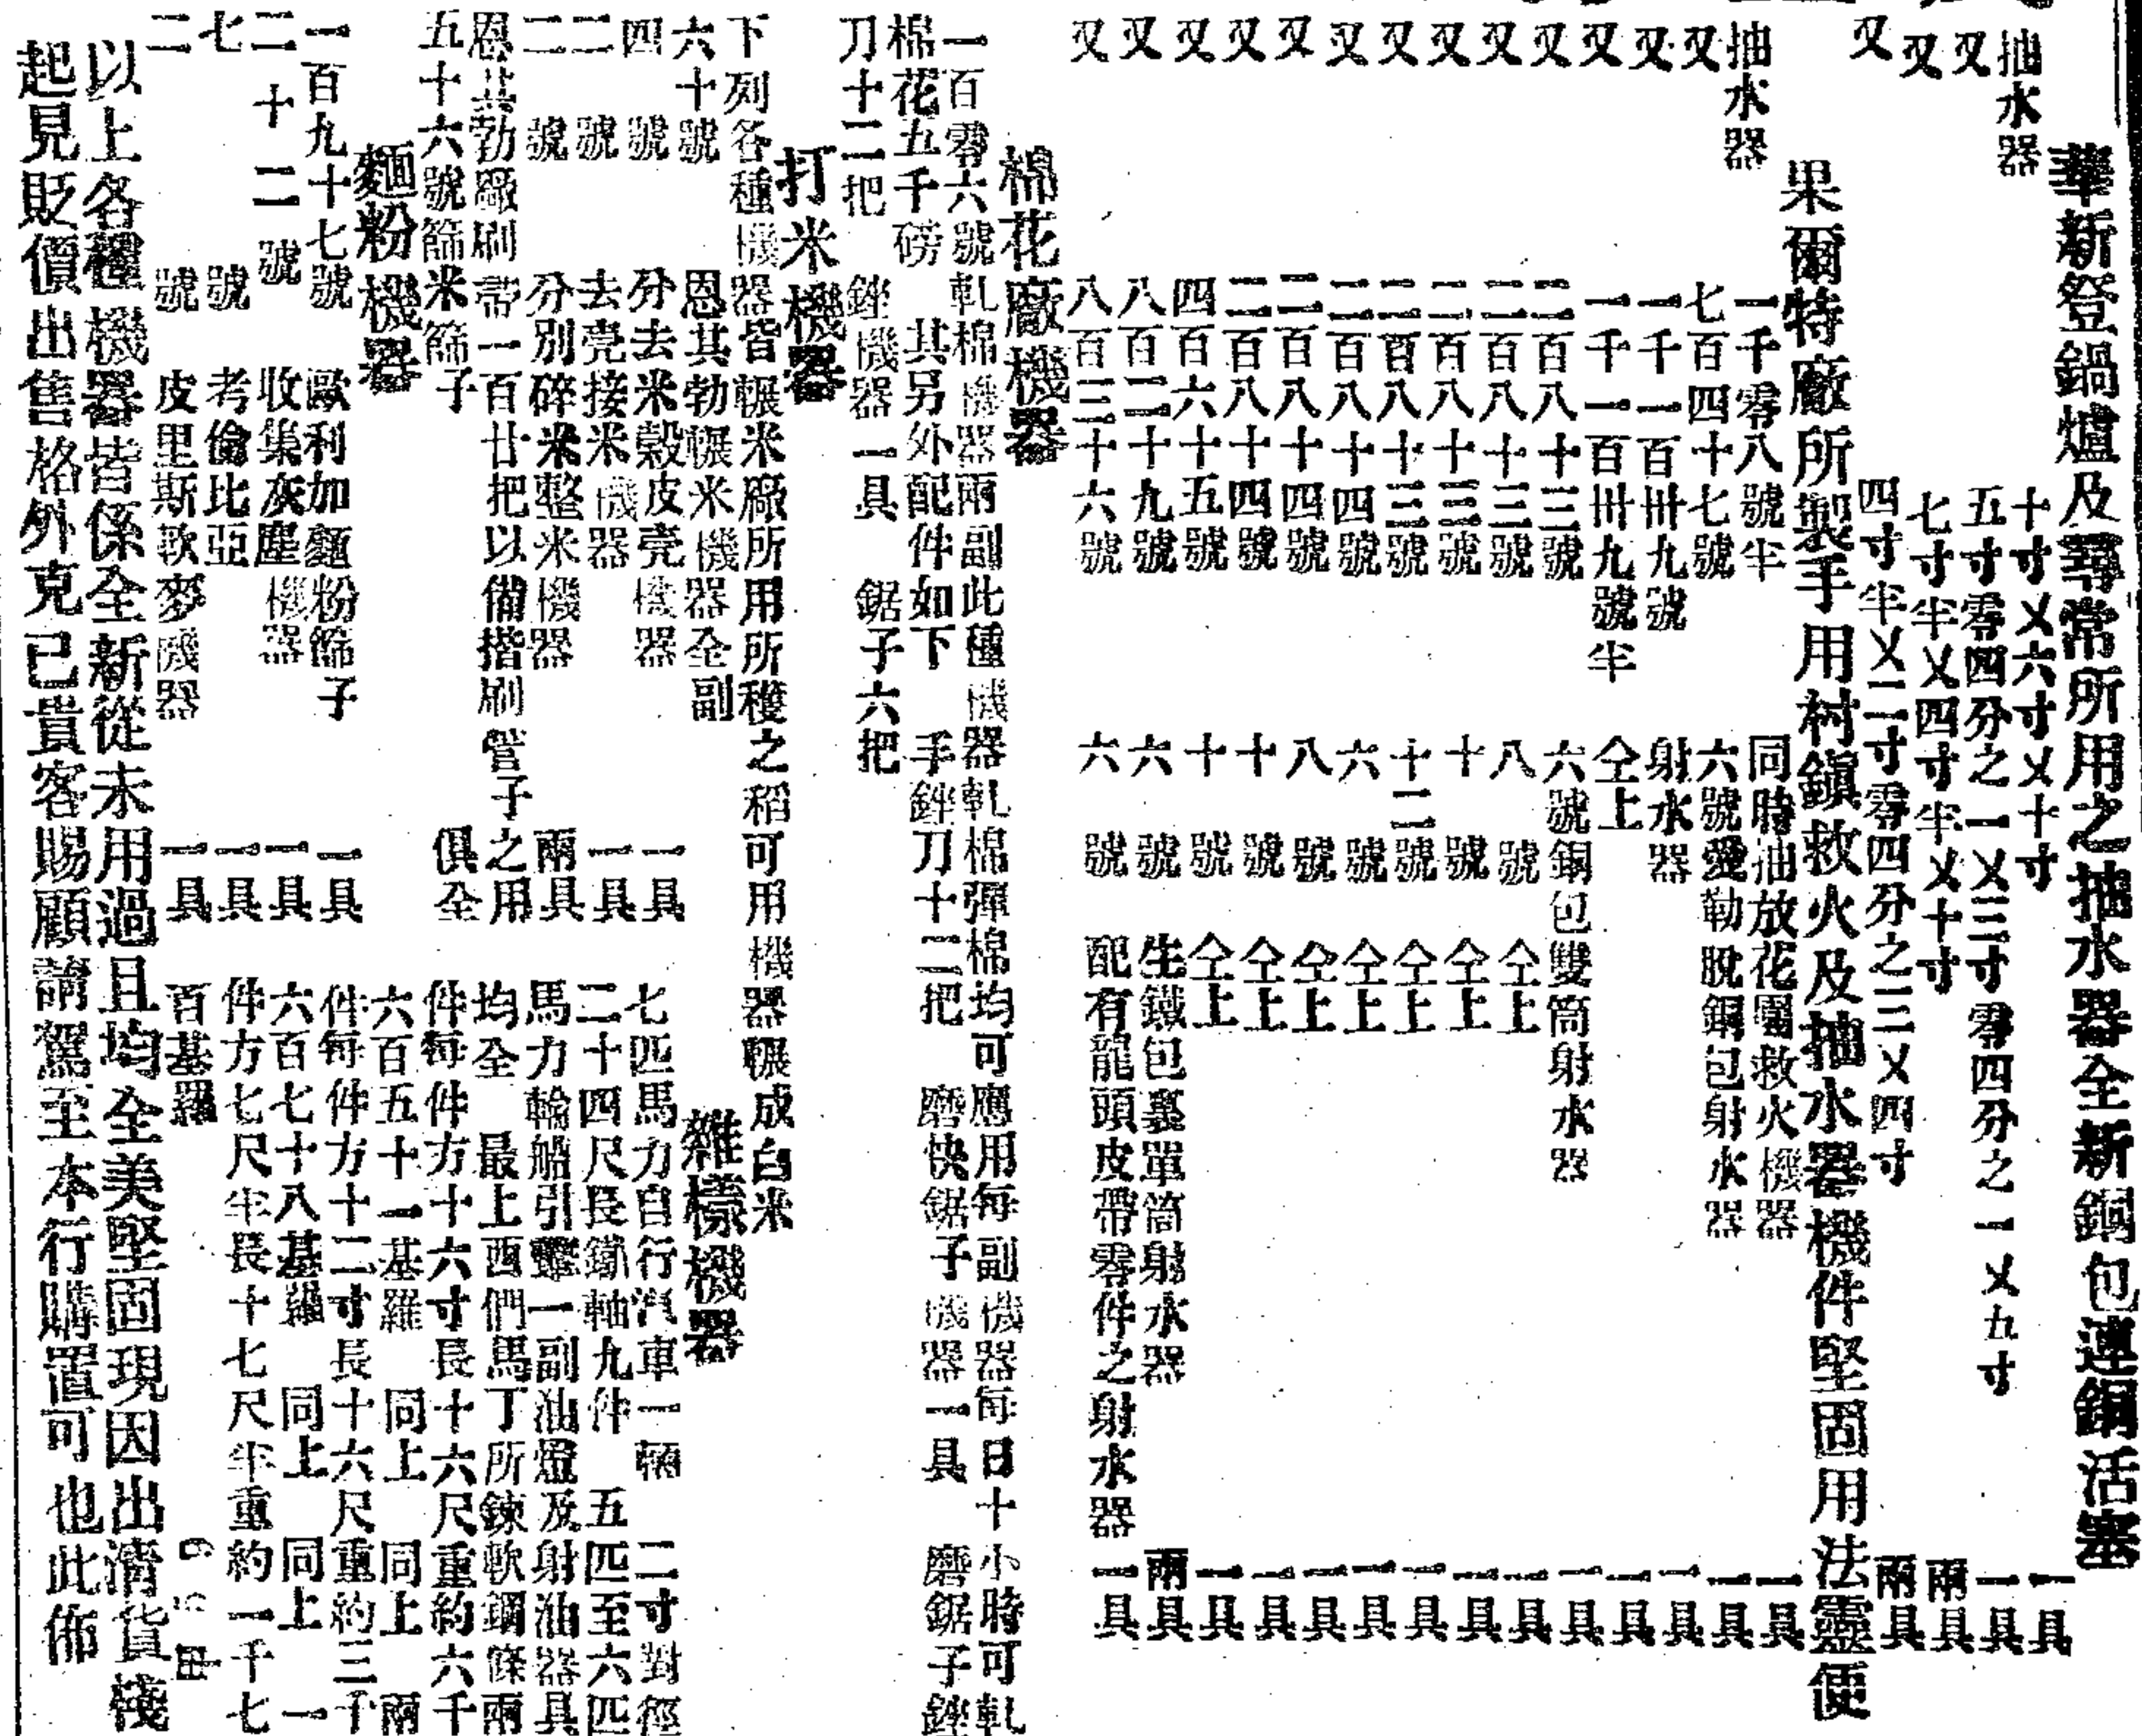 華新登鍋爐及尋常所用之抽水器全新銅包連銅活塞
抽水器 十寸乂六寸乂十寸 一具
又 五寸零四分之一乂三寸零四分之一乂五寸 一具
又 七寸半乂四寸半乂十寸 兩具
又 四寸半乂二寸零四分之三乂四寸 兩具
果爾特廠所製手用村鎮救火及抽水器機件堅固用法靈便
抽水器 一千零八號半 同時抽放花園救火機器 一具
又 七百四十七號 六號愛勒脫銅包射水器 一具
又 一千一百卅九號 射水器 一具
又 一千一百卅九號半 仝上 一具
又 二百八十三號 六號銅包雙筒射水器 一具
又 二百八十三號 八號 仝上 一具
又 二百八十三號 十號 仝上 一具
又 二百八十三號 十二號 仝上 一具
又 二百八十四號 六號 仝上 一具
又 二百八十四號 八號 仝上 一具
又 二百八十四號 十號 仝上 一具
又 四百六十五號 十號 仝上 一具
又 八百二十九號 六號 生鐵包裹單筒射水器 兩具
又 八百三十六號 六號 配有龍頭皮帶零件之射水器 一具
棉花廠機器
一百零六號軋棉機器兩副此種機器軋棉彈棉均可應用每副機器每日十小時可軋
棉花五千磅 其另外配件如下 手銼刀十二把 磨快鋸子機器一具 磨鋸子銼
刀十二把 銼機器一具 鋸子六把
打米機器
下列各種機器皆輾米廠所用所穫之稻可用機器輾成白米
六十號 恩其勃輾米機器全副
四號 分去米穀皮壳機器 一具
二號 去壳接米機器 一具
二號 分別碎米整米機器 兩具
恩其勃廠刷帚一百廿把以備揩刷管子之用
五十六號篩米篩子 俱全
麵粉機器
一百九十七號 歐利加麵粉篩子 一具
二十二號 收集灰塵機器 一具
七號 考倫比亞 一具
二號 皮里斯軟麥機器 一具
雜樣機器
七匹馬力自行汽車一輛 二寸對徑
二十四尺長鐵軸九件 五匹至六匹
馬力輪船引擎一副油爐及射油器具
均全 最上西們馬丁所鍊軟鋼條兩
件每件方十六寸長十六尺重約六千
六百五十一基羅 同上 同上 兩
件每件方十二寸長十六尺重約三千
六百七十八基羅 同上 同上 一
件方七尺半長十七尺半重約一千七
百基羅
以上各種機器皆係全新從未用過且均全美堅固現因出清貨棧
起見貶價出售格外克己貴客賜顧請駕至本行購置可也此佈